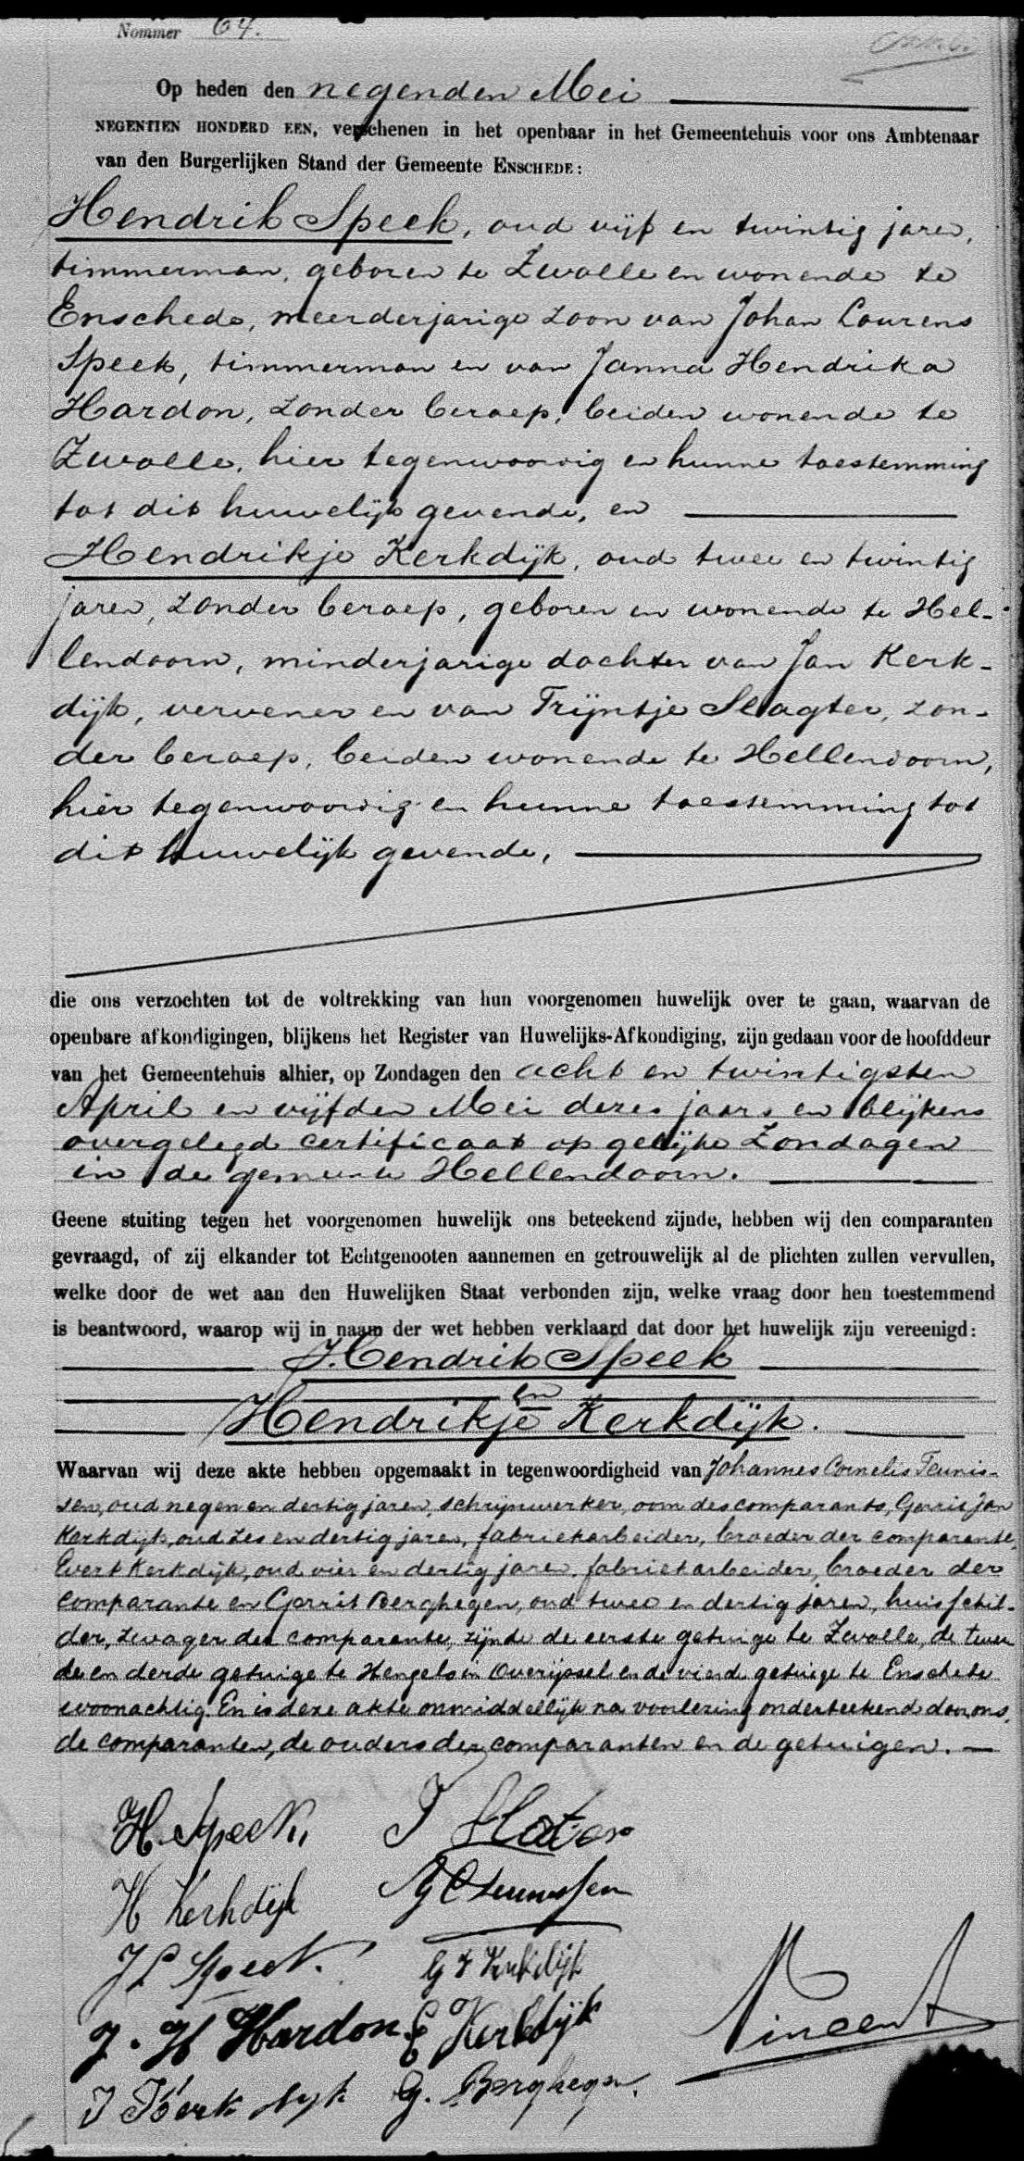 Nommer 64.
Op heden den negenden Mei
NEGENTIEN HONDERD EEN, verschenen in het openbaar in het Gemeentehuis voor ons Ambtenaar
van den Burgerlijken Stand der Gemeente ENSCHEDE:
Hendrik Speek, oud vijf en twintig jaren,
timmerman, geboren te Zwolle en wonende te
Enschede, meerderjarige zoon van Johan Lourens
Speek, timmerman en van Janna Hendrika
Hardon, zonder beroep, beiden wonende te
Zwolle, hier tegenwoordig en hunne toestemming
tot dit huwelijk gevende, en
Hendrikje Kerkdijk, oud twee en twintig
jaren, zonder beroep, geboren en wonende te Hel-
lendoorn, minderjarige dochter van Jan Kerk-
dijk, vervener en van Trijntje Slagter, zon-
der beroep, beiden wonende te Hellendoorn,
hier tegenwoordig en hunne toestemming tot
dit huwelijk gevende,
die ons verzochten tot de voltrekking van hun voorgenomen huwelijk over te gaan, waarvan de
openbare afkondigingen, blijkens het Register van Huwelijks-Afkondiging, zijn gedaan voor de hoofddeur
van het Gemeentehuis alhier, op Zondagen den acht en twintigsten
April en vijfden Mei dezes jaars en blijkens
overgelegd certificaat op gelijke Zondagen
in de gemeente Hellendoorn.
Geene stuiting tegen het voorgenomen huwelijk ons beteekend zijnde, hebben wij den comparanten
gevraagd, of zij elkander tot Echtgenooten aannemen en getrouwelijk al de plichten zullen vervullen,
welke door de wet aan den Huwelijken Staat verbonden zijn, welke vraag door hen toestemmend
is beantwoord, waarop wij in naam der wet hebben verklaard dat door het huwelijk zijn vereenigd:
Hendrik Speek
en
Hendrikje Kerkdijk.
Waarvan wij deze akte hebben opgemaakt in tegenwoordigheid van Johannes Cornelis Teunis-
sen, oud negen en dertig jaren, schrijnwerker, oom des comparants, Gerrit Jan
Kerkdijk, oud zes en dertig jaren, fabriekarbeider, broeder der comparante,
Evert Kerkdijk, oud vier en dertig jaren, fabriekarbeider, broeder der
comparante en Gerrit Berghegen, oud twee en dertig jaren, huisschil-
der, zwager der comparante, zijnde de eerste getuige te Zwolle, de twee
de en derde getuige te Hengelo in Overijssel en de vierde getuige te Enschede
woonachtig. En is deze akte onmiddellijk na voorlezing onderteekend door ons,
de comparanten, de ouders der comparanten en de getuigen.
H. Speek
T Slater
H Kerkdijk
J C Teunissen
J L Speek
G J Kerkdijk
J. H Hardon
E Kerkdijk
J Kerkdijk
G. Berghegen.
Vincent